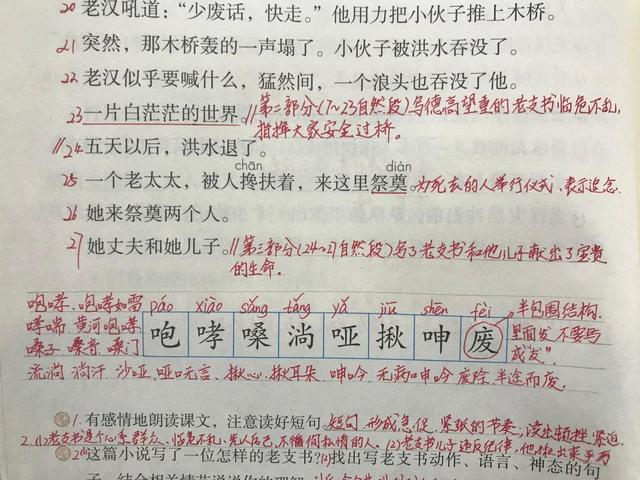 20 老汉吼道：“少废话，快走。”他用力把小伙子推上木桥。
21 突然，那木桥轰的一声塌了。小伙子被洪水吞没了。
22 老汉似乎要喊什么，猛然间，一个浪头也吞没了他。
23 一片白茫茫的世界。//第二部分(7~23自然段)写德高望重的老支书临危不乱,
指挥大家安全过桥。
//24 五天以后，洪水退了。
chān diàn
25 一个老太太，被人搀扶着，来这里祭奠。为死去的人举行仪式,表示追念.
26 她来祭奠两个人。
27 她丈夫和她儿子。//第三部分(24~27自然段)写了老支书和他儿子献出了宝贵
的生命.
咆哮、咆哮如雷 páo xiào sǎng tǎng yǎ jiū shēn fèi 半包围结构.
哮喘 黄河咆哮 咆 哮 嗓 淌 哑 揪 呻 废 里面发 不要写
嗓子 嗓音 嗓门 成发"
流淌 淌汗 沙哑、哑口无言、揪心、揪耳朵 呻吟 无病呻吟 废除 半途而废.
1. 有感情地朗读课文，注意读好短句。短句 形成急促、紧张的节奏; 读出顿挫、紧迫
2.(1)老支书是个心系群众、临危不乱、先人后己、不徇私情的人. (2)老支书儿子违反纪律,他揪出来
这篇小说写了一位怎样的老支书？(2)找出写老支书动作、语言、神态的句